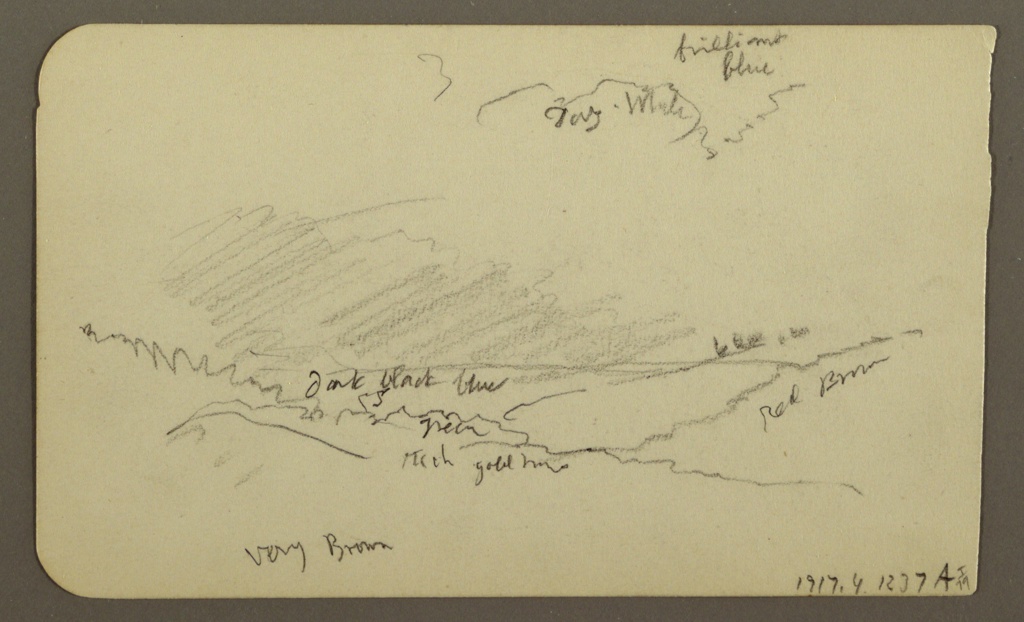 brilliant
blue
dark black blue
green
rich gold
red Brown
very Brown
1917.4.1237A